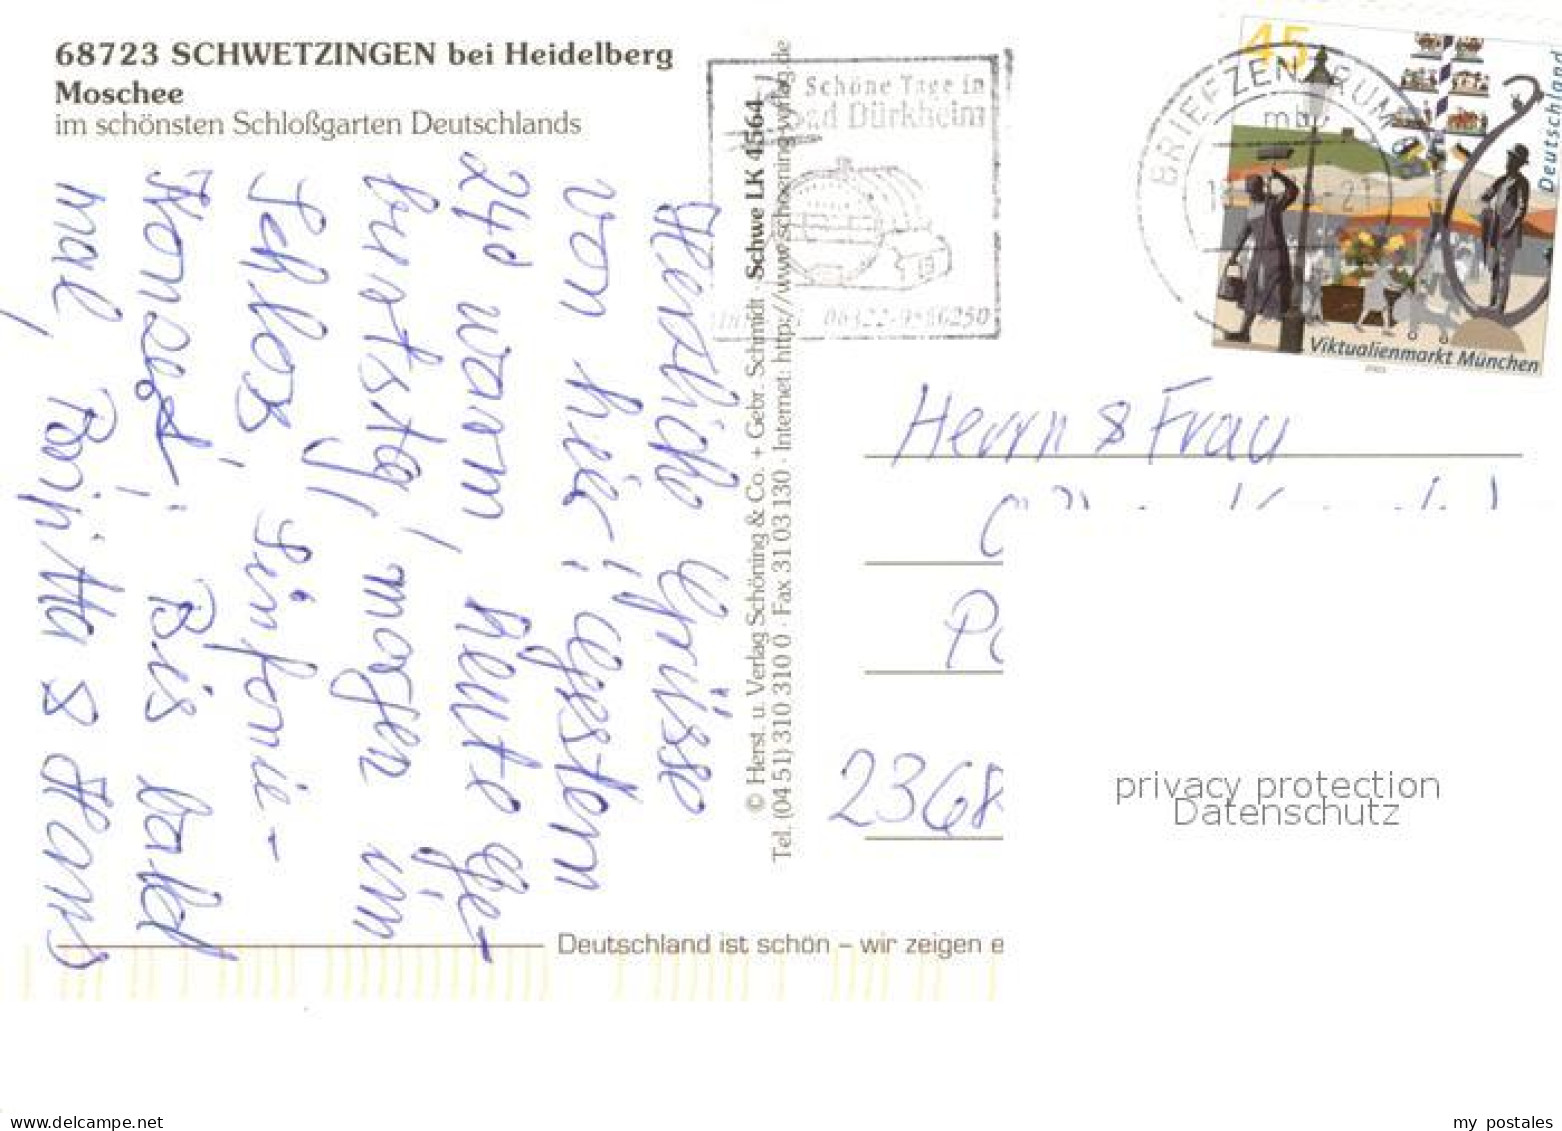 68723 SCHWETZINGEN bei Heidelberg
Moschee
im schönsten Schloßgarten Deutschlands
Schöne Tage in
Bad Dürkheim
06322-9566250
BRIEFZENTRUM
mb
-21
45
Deutschland
Viktualienmarkt München
Herzliche Grüsse
von hier! Gestern
24° warm, heute Ge-
burtstg! morgen im
Schloß, Sinfonie-
Konzert! Bis bald
mal,
& Hans
© Herst. u. Verlag Schöning & Co. + Gebr. Schmidt · Schwe LK 4564
Tel. (04 51) 310 310 0 · Fax 31 03 130 · Internet: http://www.schoening-verlag.de
Herrn & Frau
2368
privacy protection
Datenschutz
Deutschland ist schön – wir zeigen e
www.delcampe.net
my_postales